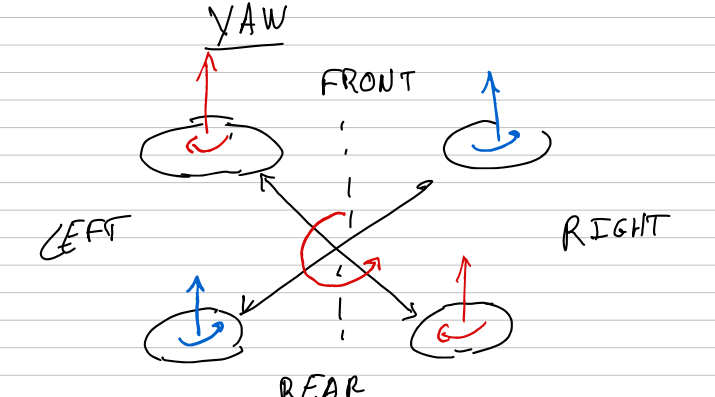 YAW
FRONT
LEFT
RIGHT
REAR